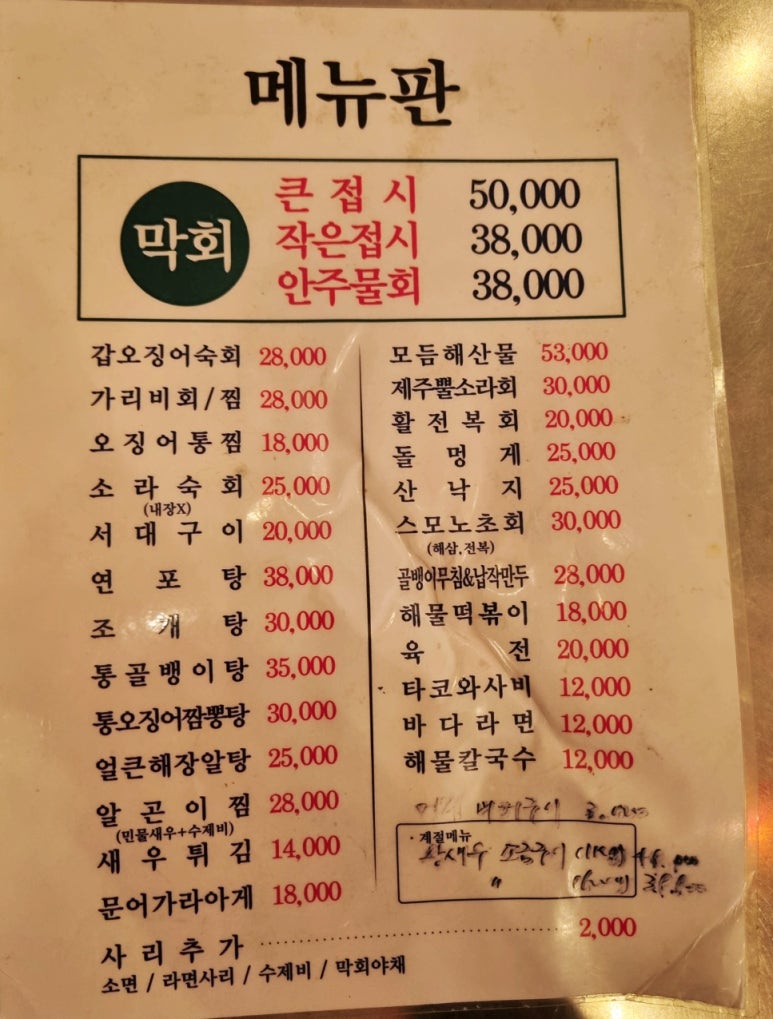 메뉴판
막회
큰접시 50,000
작은접시 38,000
안주물회 38,000
갑오징어숙회 28,000
가리비회/찜 28,000
오징어통찜 18,000
소라숙회 25,000
(내장X)
서대구이 20,000
연포탕 38,000
조개탕 30,000
통골뱅이탕 35,000
통오징어짬뽕탕 30,000
얼큰해장알탕 25,000
알곤이찜 28,000
(민물새우+수제비)
새우튀김 14,000
문어가라아게 18,000
모듬해산물 53,000
제주뿔소라회 30,000
활전복회 20,000
돌멍게 25,000
산낙지 25,000
스모노초회 30,000
(해삼,전복)
골뱅이무침&납작만두 28,000
해물떡볶이 18,000
육전 20,000
타코와사비 12,000
바다라면 12,000
해물칼국수 12,000
· 계절메뉴
왕새우 소금구이
"
사리추가 2,000
소면 / 라면사리 / 수제비 / 막회야채